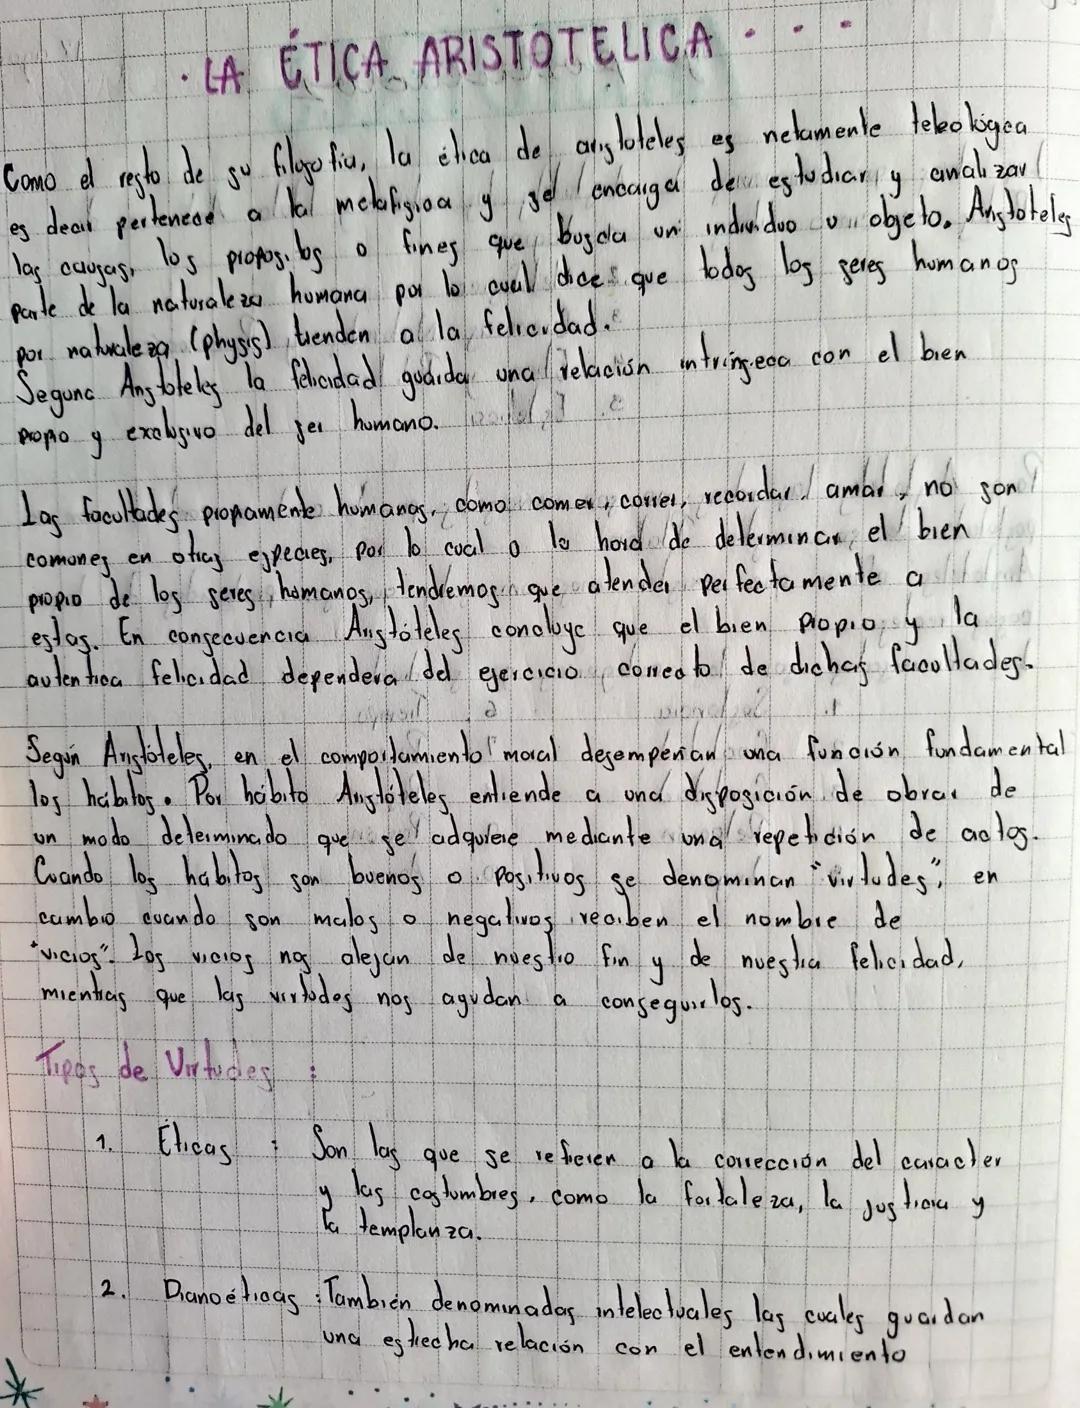 · LA ÉTICA ARISTOTELICA · · · -
Como el resto de su filosofia, la ética de aristoteles es netamente teleológica
es decir pertenece a la metafisica y se encarga de estudiar y analizar
las causas, los propositos o fines que busca un individuo u objeto. Aristoteles
parte de la naturaleza humana por lo cual dice que todos los seres humanos
por naturaleza (physis) tienden a la felicidad.
Segun Aristoteles la felicidad guarda una relación intrinseca con el bien
propio y exclusivo del ser humano.
Las facultades propiamente humanas, como comer, correr, recordar, amar, no son
comunes en otras especies, por lo cual a la hora de determinar el bien
propio de los seres humanos, tendremos que atender perfectamente a
estas. En consecuencia Aristóteles concluye que el bien propio y la
autentica felicidad dependera del ejercicio correcto de dichas facultades.
Según Aristóteles, en el comportamiento moral desempeñan una función fundamental
los hábitos. Por hábito Aristóteles entiende a una disposición de obrar de
un modo determinado que se adquiere mediante una repetición de actos.
Cuando los habitos son buenos o positivos se denominan "virtudes", en
cambio cuando son malos o negativos reciben el nombre de
"vicios". Los vicios nos alejan de nuestro fin y de nuestra felicidad,
mientras que las virtudes nos ayudan a conseguirlos.
Tipos de Virtudes :
1. Éticas : Son las que se refieren a la corrección del caracter
y las costumbres, como la fortaleza, la justicia y
la templanza.
2. Dianoéticas : También denominadas intelectuales las cuales guardan
una estrecha relación con el entendimiento